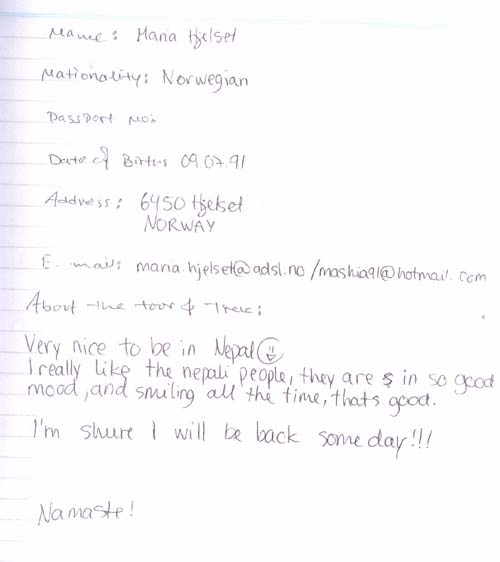 Name: Maria Hjelset
Nationality: Norwegian
Passport No:
Date of Birth: 09.07.91
Address: 6450 Hjelset
NORWAY
E. mail: maria.hjelset@adsl.no/mashia91@hotmail.com
About the tour & Trek:
Very nice to be in Nepal
I really like the nepali people, they are in so good
mood, and smiling all the time, thats good.
I'm shure I will be back some day!!!
Namaste!